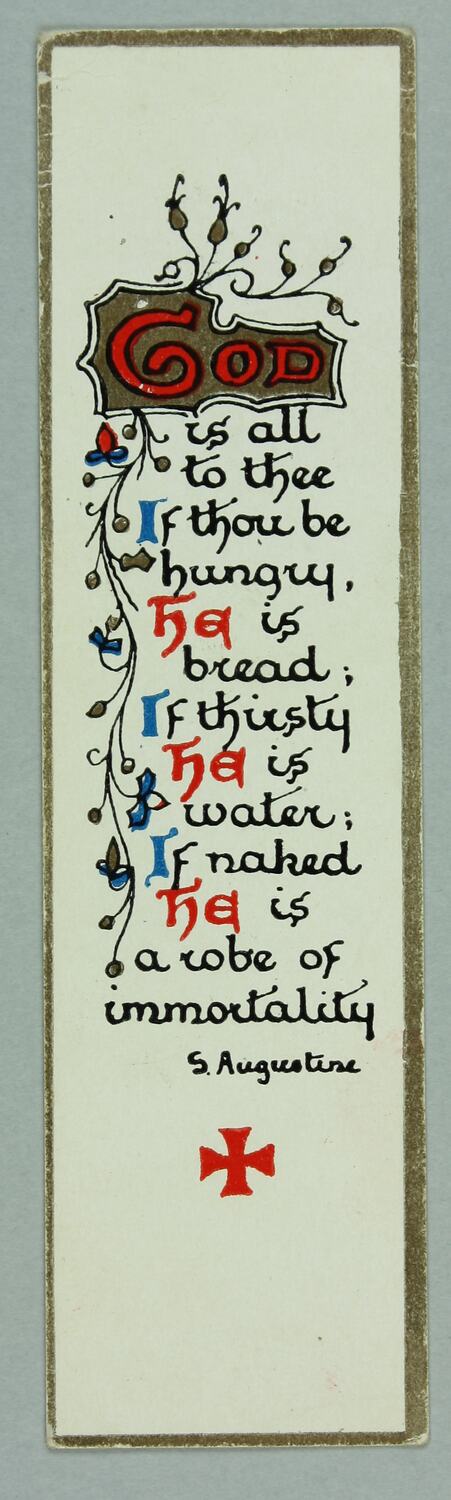 GOD
is all
to thee
If thou be
hungry,
He is
bread;
If thirsty
He is
water;
If naked
He is
a robe of
immortality
S. Augustine